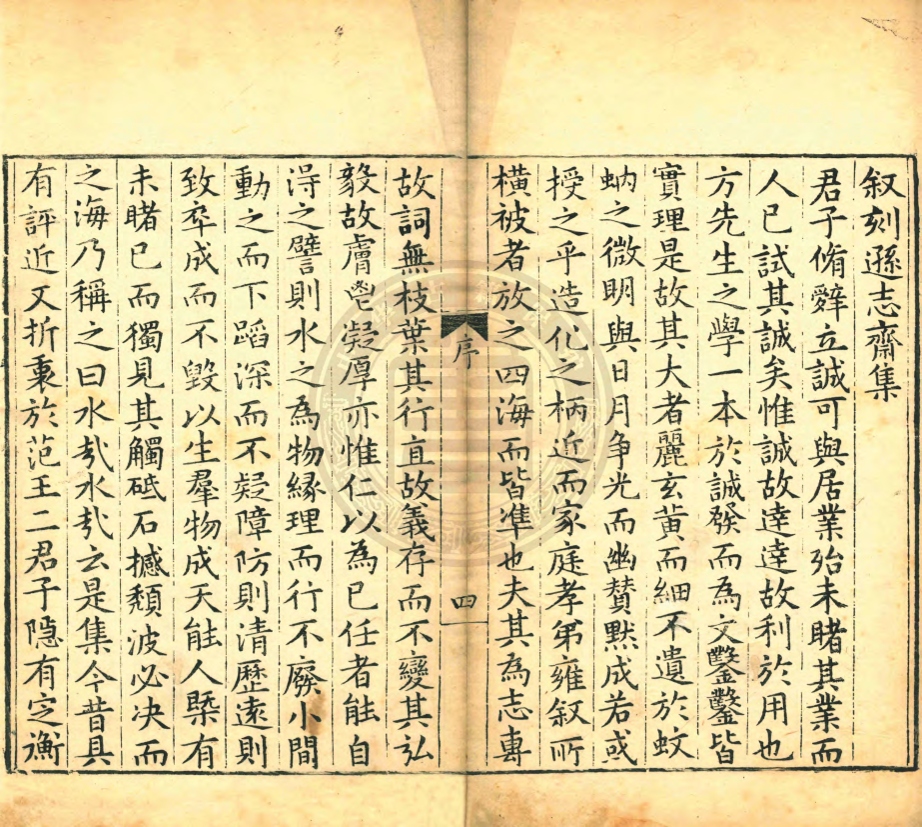 叙刻遜志齋集
君子脩辤立誠可與居業殆未睹其業而
人已試其誠矣惟誠故達達故利於用也
方先生之學一本於誠發而為文鑿鑿皆
實理是故其大者麗玄黄而細不遺於蚊
蚋之微明與日月争光而幽賛黙成若或
授之乎造化之柄近而家庭孝弟雍叙所
横被者放之四海而皆凖也夫其為志專
序
四
故詞無枝葉其行直故義存而不變其弘
毅故膚鬯凝厚亦惟仁以為已任者能自
淂之譬則水之為物縁理而行不廢小間
動之而下蹈深而不疑障防則清歷逺則
致卒成而不毁以生羣物成天能人槩有
未睹已而獨見其觸砥石撼頽波必决而
之海乃稱之曰水㢤水㢤云是集今昔具
有評近又折衷於范王二君子隠有定衡